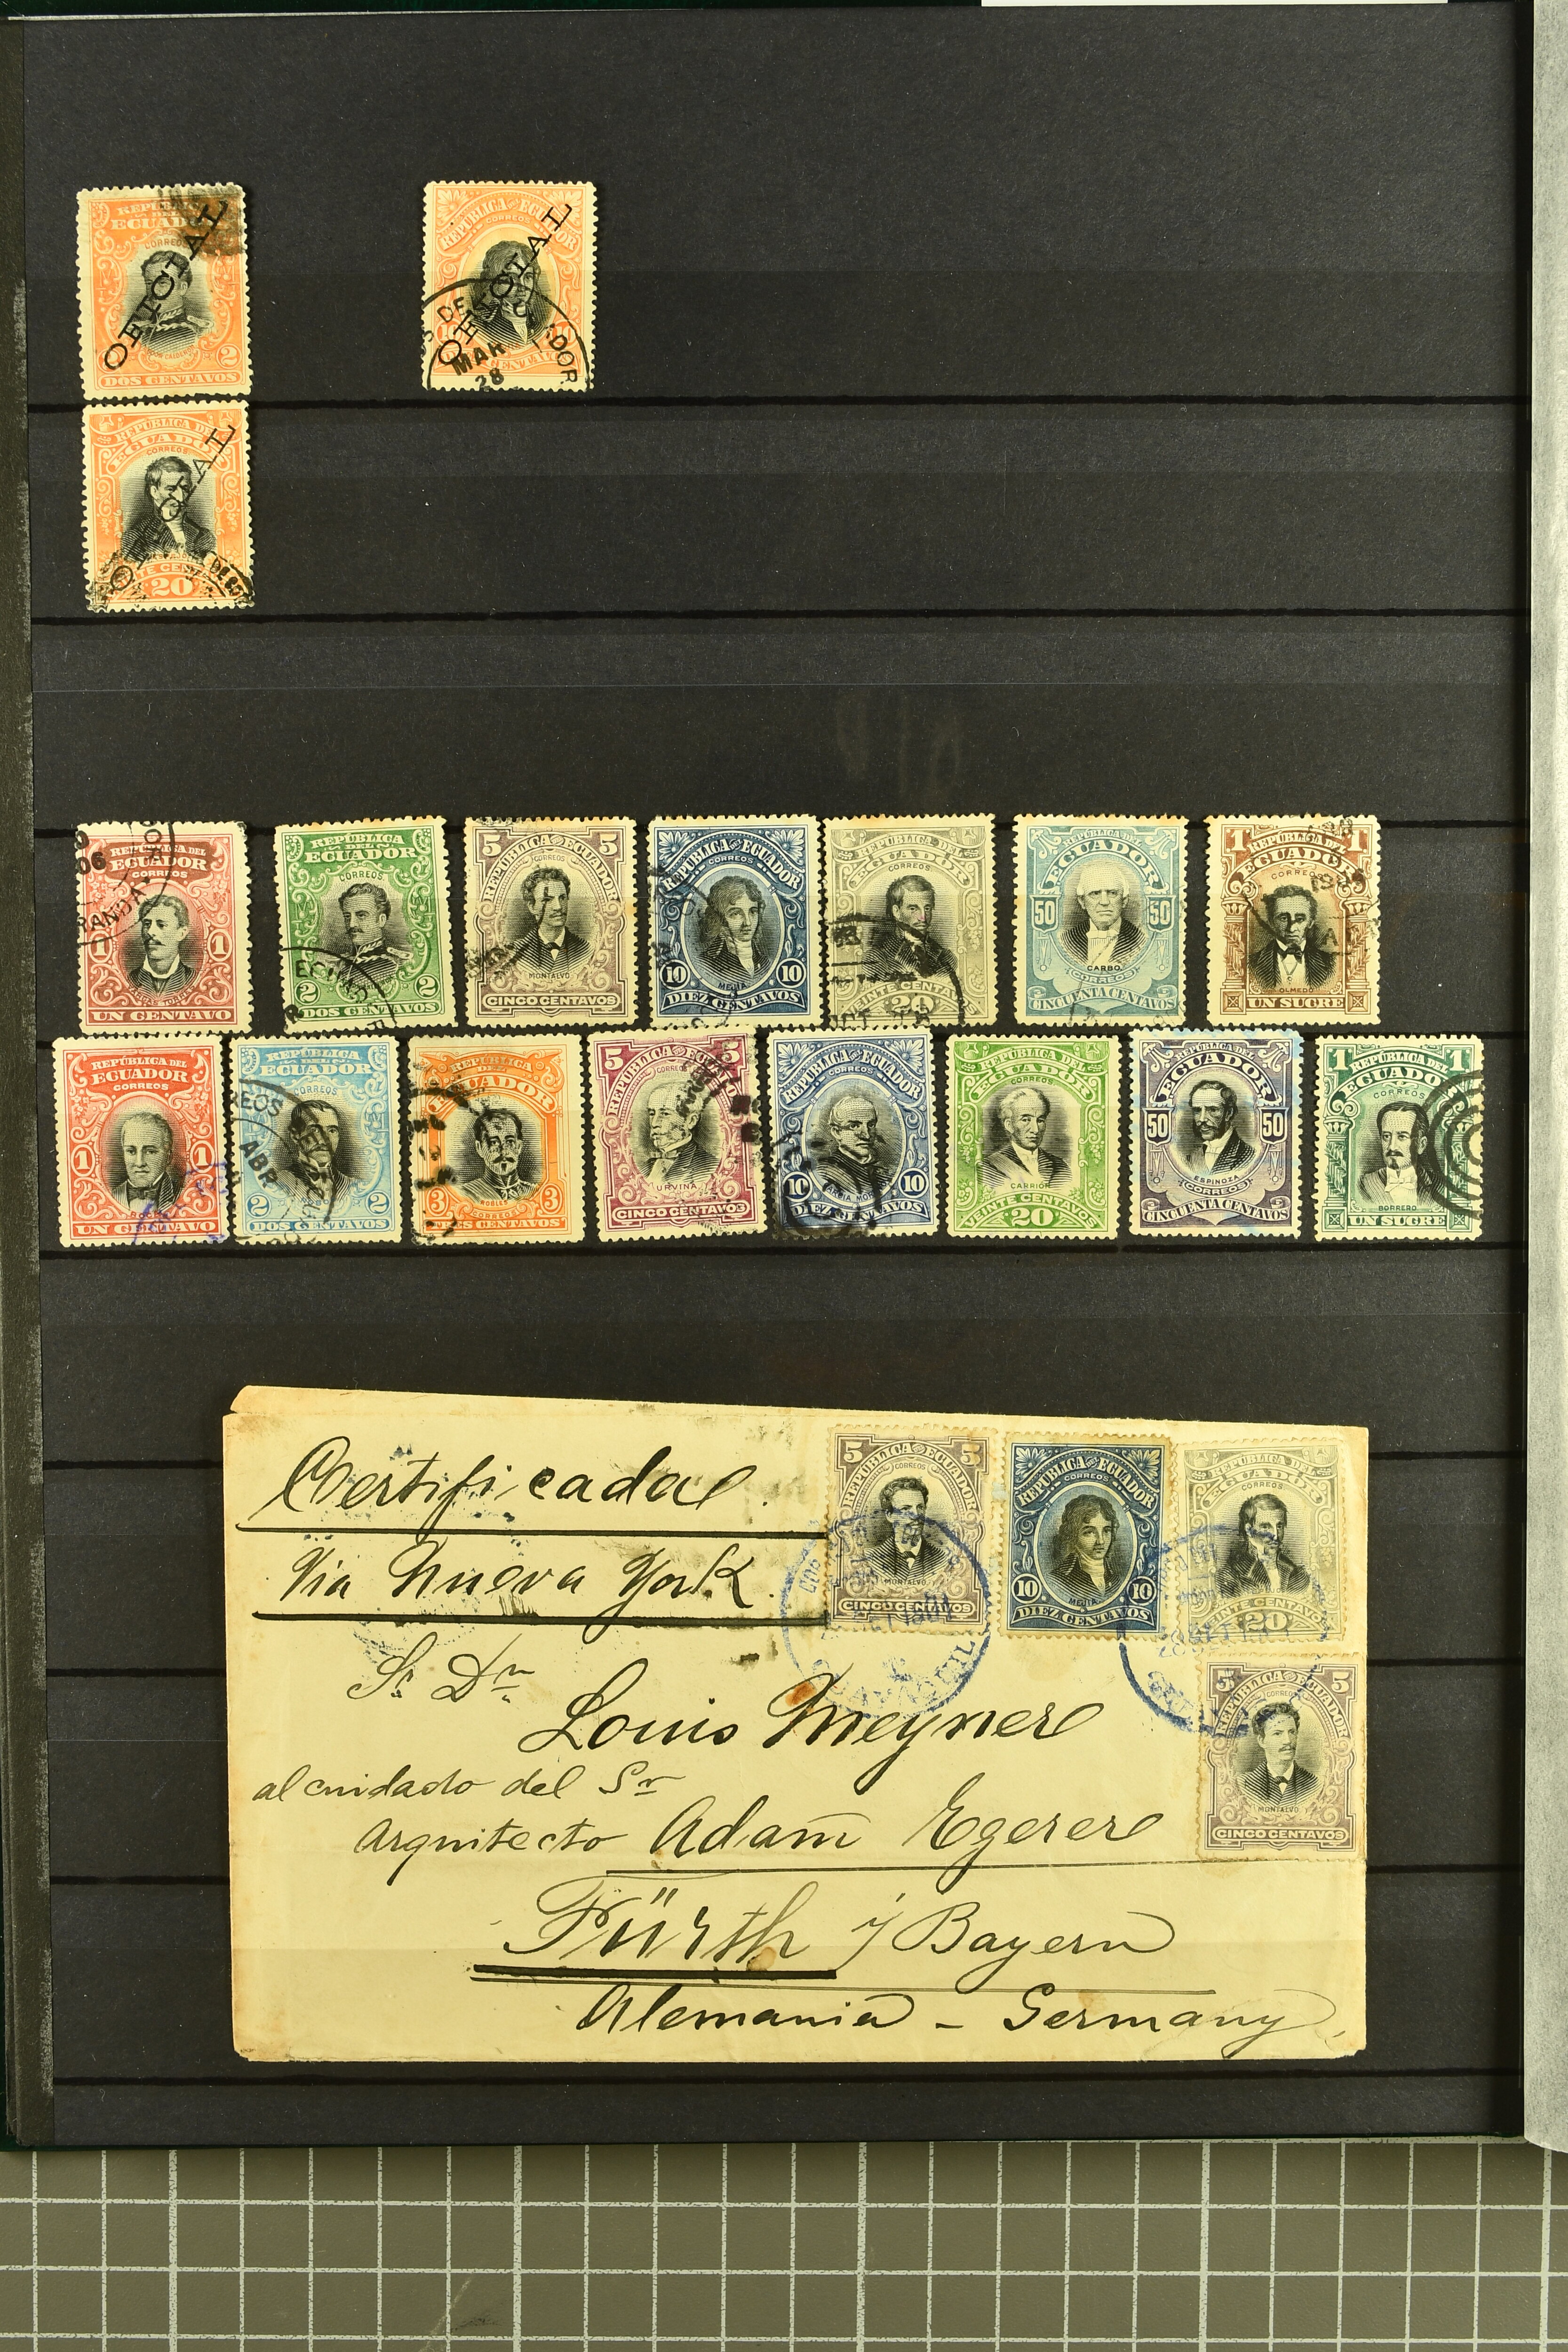 REPÚBLICA
ECUADOR
CORREOS
OFICIAL
2
DOS CENTAVOS
REPÚBLICA DEL ECUADOR
CORREOS
OFICIAL
10
CENTAVOS
DE
MAR
28
REPÚBLICA DEL
ECUADOR
CORREOS
OFICIAL
20
REPÚBLICA DEL
ECUADOR
CORREOS
1 1
UN CENTAVO
06
REPÚBLICA
DEL
ECUADOR
CORREOS
2 2
DOS CENTAVOS
ECUADOR
5 5
REPÚBLICA DEL ECUADOR
CORREOS
MONTALVO
CINCO CENTAVOS
REPÚBLICA DEL ECUADOR
CORREOS
MEJIA
10 10
DIEZ CENTAVOS
REPÚBLICA DEL
ECUADOR
CORREOS
VEINTE CENTAVOS
20
OCT
REPÚBLICA DEL
ECUADOR
50 50
CARBO
CORREOS
CINCUENTA CENTAVOS
1 1
REPÚBLICA DEL
ECUADOR
CORREOS
OLMEDO
UN SUCRE
REPÚBLICA DEL
ECUADOR
CORREOS
1 1
UN CENTAVO
REPÚBLICA
DEL
ECUADOR
CORREOS
2 2
DOS CENTAVOS
ABR
REPÚBLICA
ECUADOR
3 3
ROBLES
CORREOS
TRES CENTAVOS
5 5
REPÚBLICA DEL ECUADOR
CORREOS
URVINA
CINCO CENTAVOS
REPÚBLICA DEL ECUADOR
CORREOS
GARCIA MORENO
10 10
DIEZ CENTAVOS
REPÚBLICA DEL
ECUADOR
CORREOS
CARRION
VEINTE CENTAVOS
20
REPÚBLICA DEL
ECUADOR
50 50
ESPINOZA
CORREOS
CINCUENTA CENTAVOS
1 1
REPÚBLICA DEL
ECUADOR
CORREOS
BORRERO
UN SUCRE
Certificada
Via Nueva York.
Sr. Dn.
Louis Meyner
al cuidado del Sr
Arquitecto Adam Egerer
Fürth i/Bayern
Alemania - Germany
5 5
REPÚBLICA DEL ECUADOR
CORREOS
MONTALVO
CINCO CENTAVOS
REPÚBLICA DEL ECUADOR
CORREOS
MEJIA
10 10
DIEZ CENTAVOS
REPÚBLICA DEL
ECUADOR
CORREOS
VEINTE CENTAVOS
20
5 5
REPÚBLICA DEL ECUADOR
CORREOS
MONTALVO
CINCO CENTAVOS
GUAYAQUIL